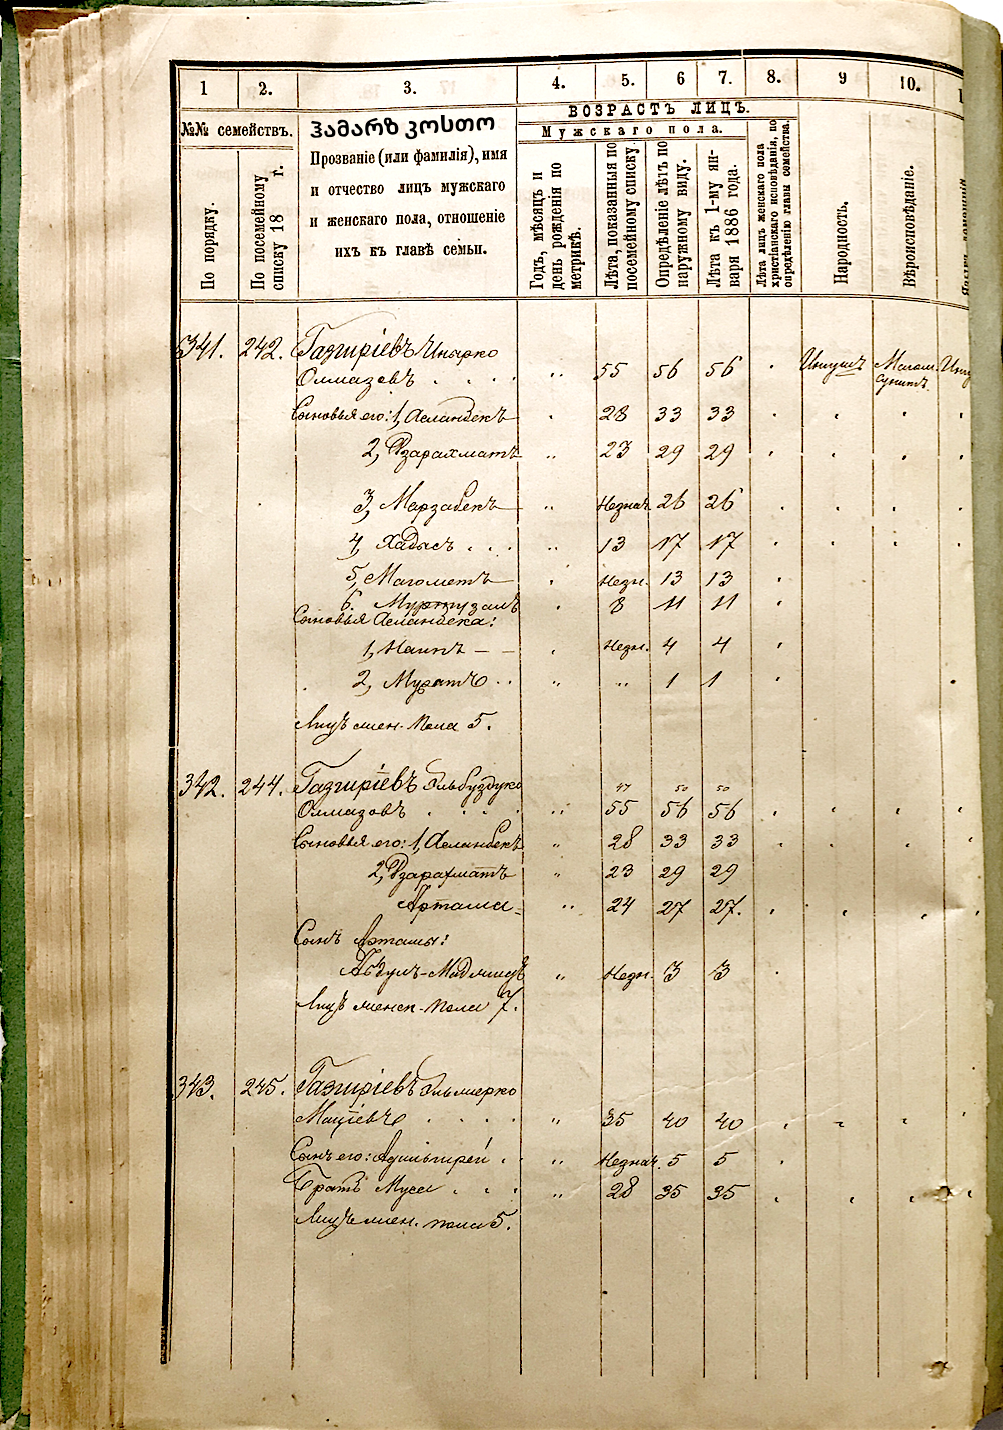 1 2. 3. 4. 5. 6 7. 8. 9 10.
ВОЗРАСТЪ ЛИЦЪ.
Мужскаго пола.
№№ семействъ.
ჰამარზ კოსთო
Прозваніе (или фамилія), имя
и отчество лицъ мужскаго
и женскаго пола, отношеніе
ихъ къ главѣ семьи.
По порядку.
По посемейному
списку 18 г.
Годъ, мѣсяцъ и
день рожденія по
метрикѣ.
Лѣта, показанныя по
посемейному списку.
Опредѣленіе лѣтъ по
наружному виду.
Лѣта къ 1-му ян-
варя 1886 года.
Лѣта лицъ женскаго пола
христіанскаго исповѣданія, по
опредѣленію главы семейства.
Народность.
Вѣроисповѣданіе.
341. 242. Газгиріевъ Инарко
Олмазовъ . . . . „ 55 56 56 . Ингушъ Магом. Сунитъ
Сыновья его: 1, Асланбекъ 28 33 33
2, Дзарахматъ „ 23 29 29
3, Марзабекъ „ Незнач. 26 26
4, Хадысъ . . . „ 13 17 17
5, Магометъ Незн. 13 13
6. Муртузалъ 8 11 11
Сыновья Асланбека:
1, Наипъ — — Незн. 4 4
2, Муратъ . . „ „ 1 1
Лицъ жен. пола 5.
342. 244. Газгиріевъ Эльбуздуко 47 50 50
Олмазовъ . . . . „ 55 56 56
Сыновья его: 1, Асланбекъ „ 28 33 33
2, Дзарахматъ „ 23 29 29
Арташи „ 24 27 27.
Сынъ Арташы:
Абдулъ-Маджидъ „ Незн. 3 3
Лицъ женск. пола 7.
343. 245. Газгиріевъ Эльмерко
Маціевъ . . . . „ 35 40 40
Сынъ его: Адильгирей . . „ Незнач. 5 5
Братъ Муса . . . „ 28 35 35
Лицъ жен. пола 5.